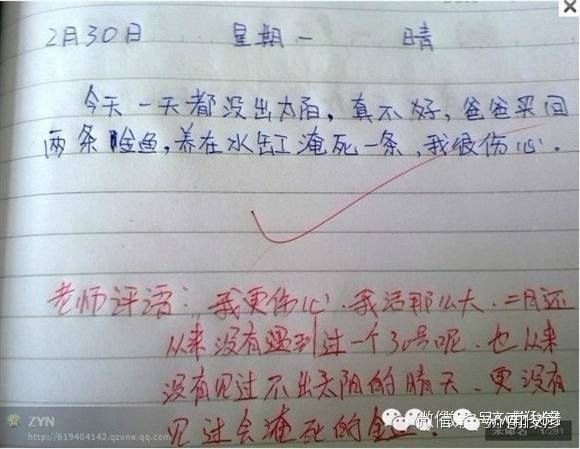 2月30日 星期一 晴
今天一天都没出太阳，真不好，爸爸买回
两条金鱼，养在水缸淹死一条，我很伤心。
老师评语：我更伤心．我活那么大．二月还
从来没有遇到过一个30号呢．也从来
没有见过不出太阳的晴天．更没有
见过会淹死的金
ZYN
http://619404142.qzone.qq.com